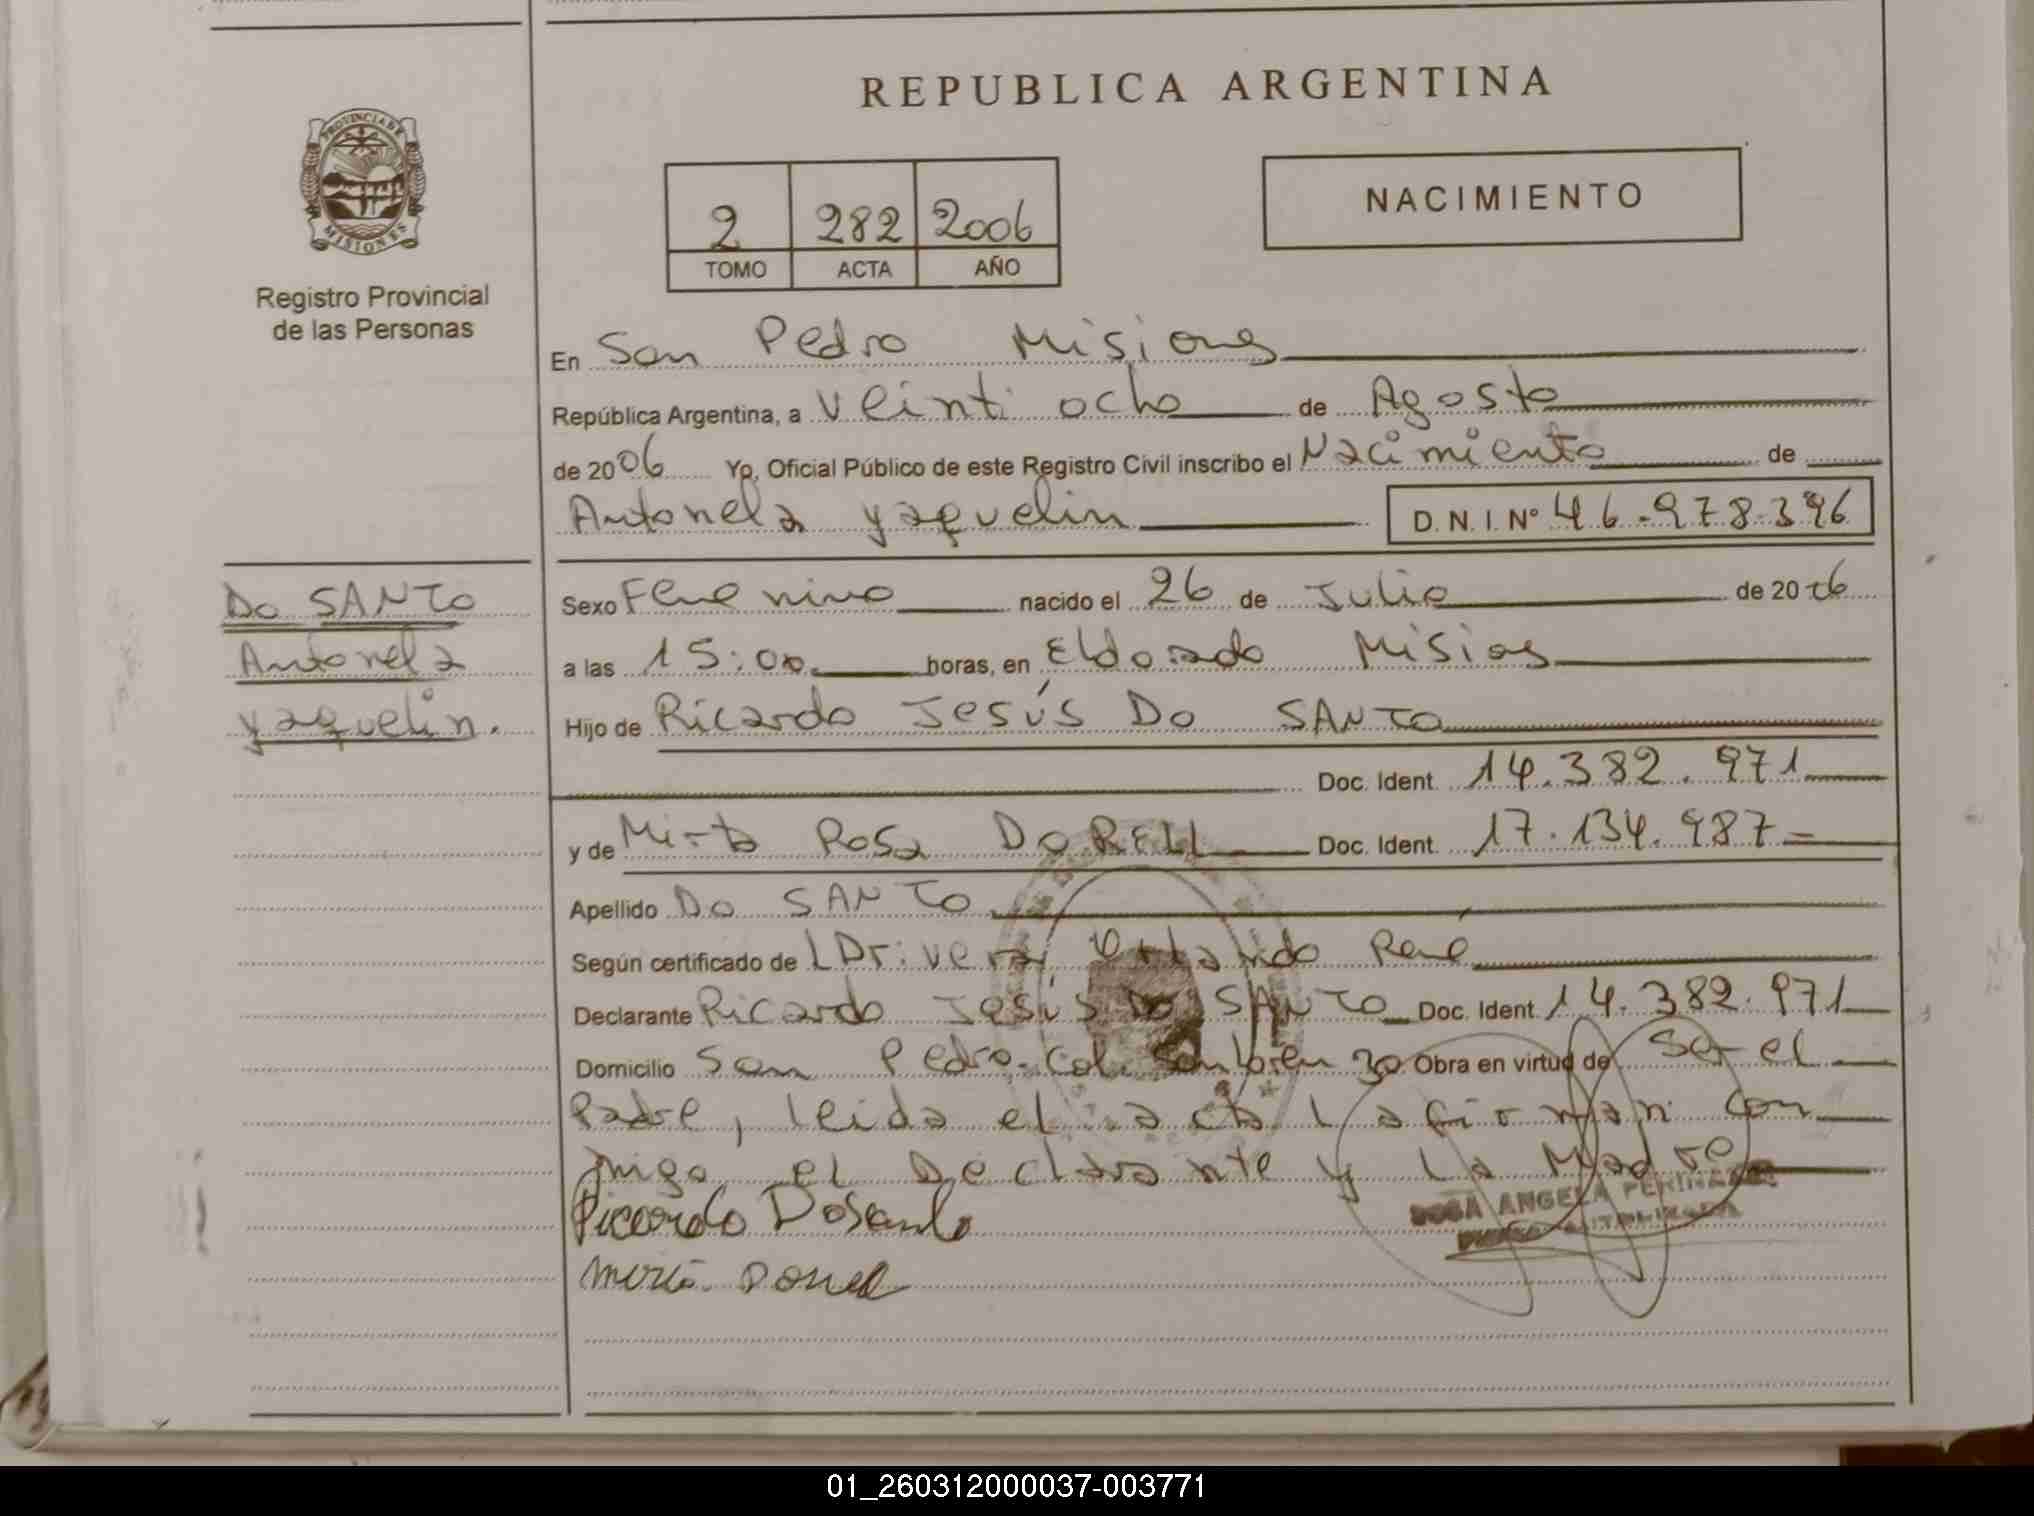 REPUBLICA ARGENTINA
PROVINCIA DE
MISIONES
Registro Provincial
de las Personas
2 282 2006
TOMO ACTA AÑO
NACIMIENTO
En San Pedro Misiones
República Argentina, a Veinti ocho de Agosto
de 2006 Yo, Oficial Público de este Registro Civil inscribo el Nacimiento de
Antonela yaquelin D. N. I. Nº 46.978.396
Do SANTO
Antonela
yaquelin.
Sexo Femenino nacido el 26 de Julio de 2006
a las 15:00 horas, en Eldorado Misiones
Hijo de Ricardo Jesús Do SANTO
Doc. Ident. 14.382.971
y de Mirta Rosa DORELL Doc. Ident. 17.134.987
Apellido Do SANTO
Según certificado de René
Declarante Ricardo Jesús Do SANTO Doc. Ident. 14.382.971
Domicilio San Pedro. Col. San Lorenzo Obra en virtud de Ser el
Padre, leida el acta la firman con
migo el Declarante y La Madre
Riccardo Dosanto
ROSA ANGELA
01_260312000037-003771